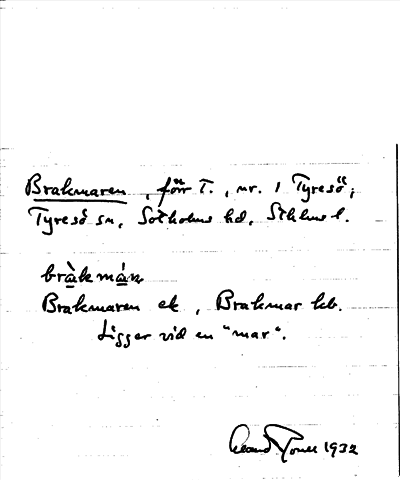 Brakmaren, förr T., nr. 1 Tyresö,
Tyresö sn, Sotholms hd, Sthlms l.
bràkmán
Brakmaren ek, Brakmar kb.
Ligger vid en "mar".
1932